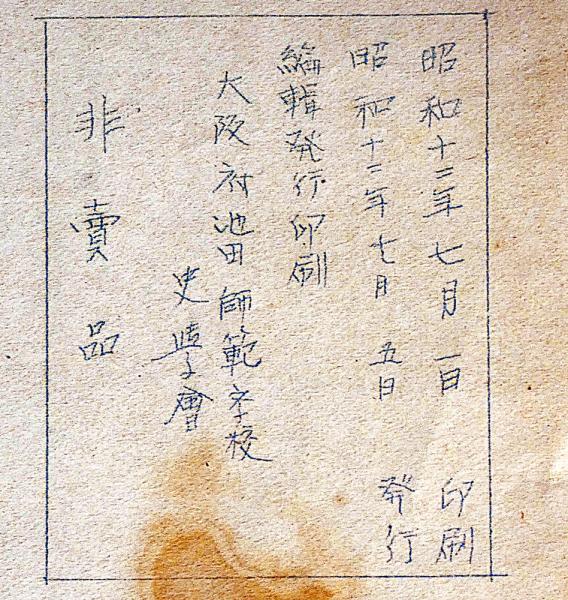 昭和十三年七月一日 印刷
昭和十三年七月五日 発行
編輯発行印刷
大阪府池田師範学校
史學會
非賣品